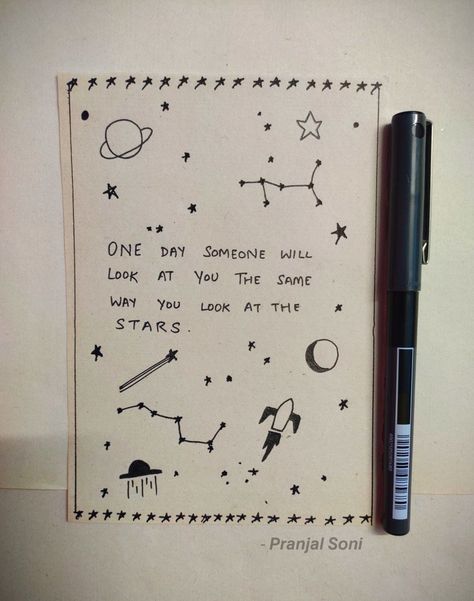 ONE DAY SOMEONE WILL
LOOK AT YOU THE SAME
WAY YOU LOOK AT THE
STARS.
- Pranjal Soni